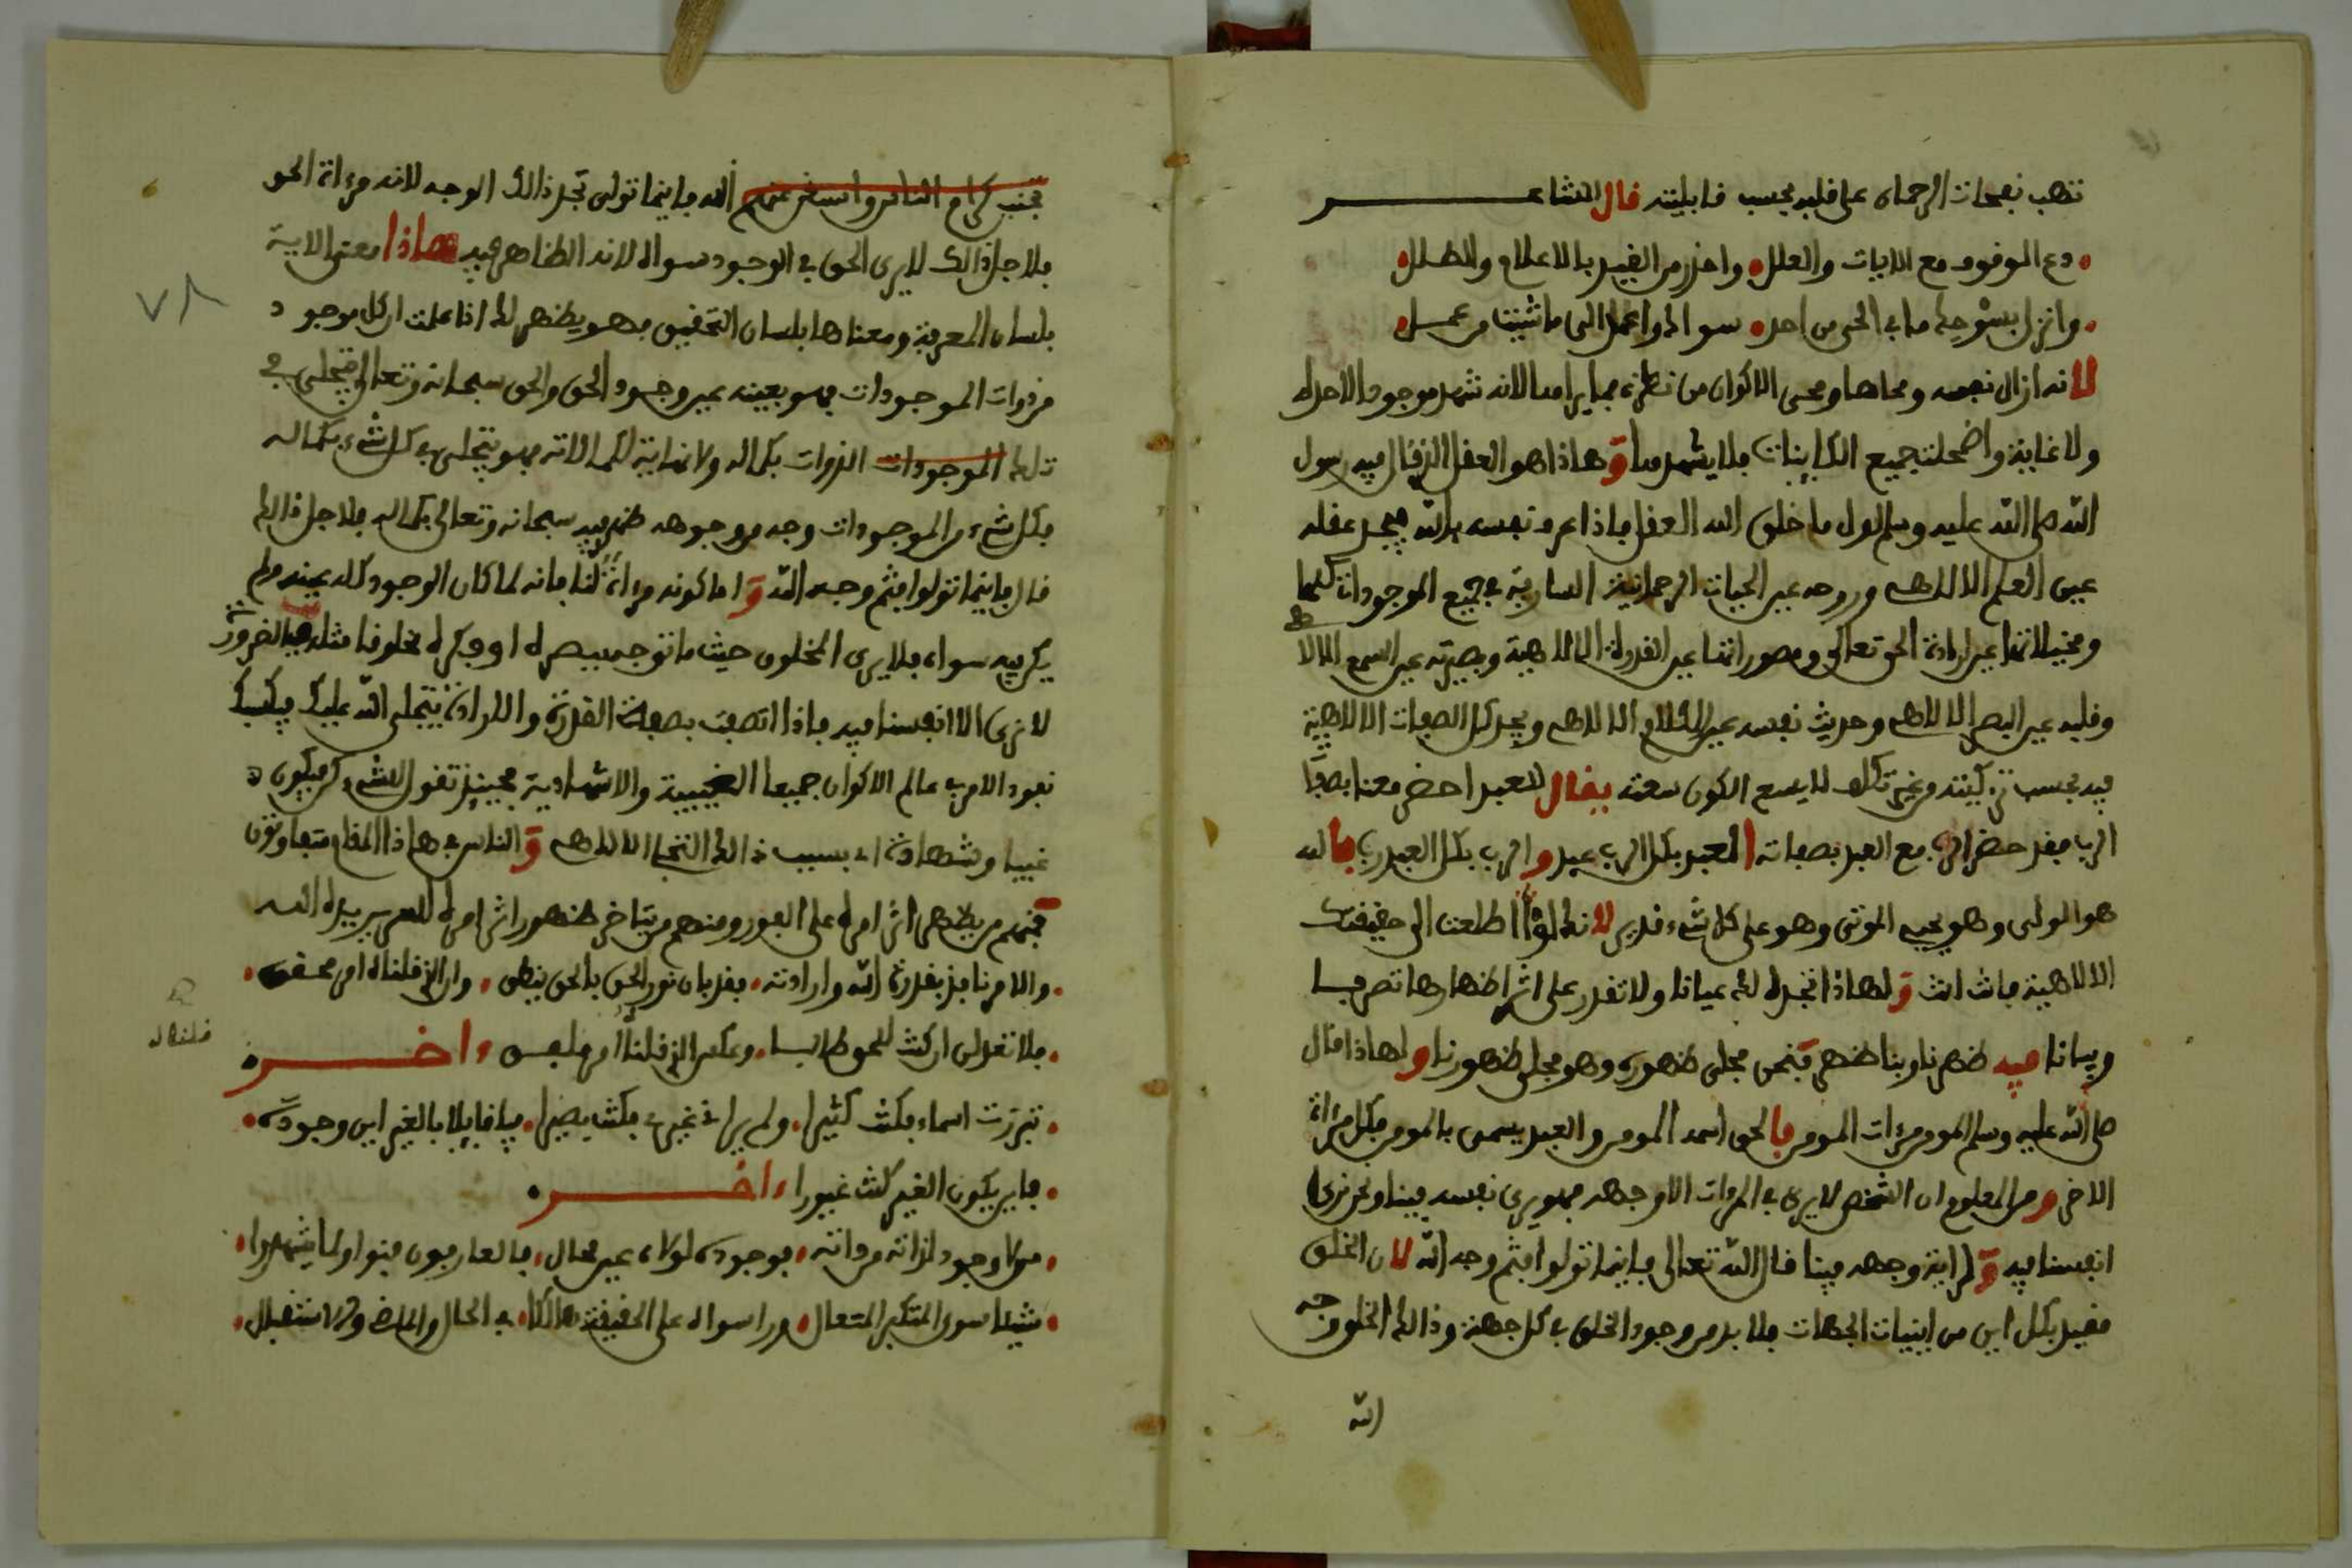 تهب نفحات الرحمان على قلبه بحسب قابليته قال الشاعر
دع الوقوف مع الابات والعلل واحذر من القيد بالاعلام والطلل
وانزل بسوحك ما في الحى من احد سواك واعمل الى ما شيت من عمل
لانه ازال نفسه ومحاها ومحى الاكوان من نظره فما يراها لانه شهد موجود الاحد له
ولا غاية واضمحلت جميع الكاينات فلا يشهدها وهاذا هو العقل الذى قال فيه رسول
الله صلى الله عليه وسلم اول ما خلق الله العقل فاذا عرف نفسه بالله فيجد عقله
عين العلم الالاهى وروحه عين الحيات الرحمانية السارية في جميع الموجودات كلها
ومخيلاتها عين ارادة الحق تعالى ومصوراتها عين القدرة الالاهية وبصيرته عين السمع الالا هى
وقلبه عين البصر الالاهى وحديث نفسه عين الكلام الالاهى ويجد كل الصفات الالاهية
فيه بحسب تزكيته وغير ذلك لا يسع الكون سعته يقال للعبد احضر معنا بصفا
الرب فقد حضر الرب مع العبد بصفاته العبد بكل الرب عبد والرب بكل العبد رب فالله
هو الولى وهو يحيى الموتى وهو على كل شىء قدير لانك لو اطلعت الى حقيقتك
الالاهية فانت انت ولهاذا تجده لك عيانا ولا تقدر على اثر اظهارها تصرفا
وبيانا فيه ظهرنا وبنا ظهر فنحن مجلى ظهوره وهو مجلى ظهورنا ولهاذا قال
صلى الله عليه وسلم المومن مرءات المومن فالحق اسمه المومن والعبد يسمى بالمومن فكل مرءاة
الاخر ومن المعلوم ان الشخص لا يرى في المرءات الا وجهه فهو يرى نفسه فينا ونحن نرى
انفسنا فيه ولراية وجهه فينا قال الله تعالى فاينما تولوا فثم وجه الله لان الخلق
مقيد بكل اين من اينيات الجهات فلا بد من وجود الخلق في كل جهة وذالك الخلق وجه
الله
الله فاينما تولى تجد ذالك الوجه لانه مرءاة الحق
فلاجل ذالك لا يرى الحق في الوجود سواه لانه الظاهر فيه هاذا معنى الاية
بلسان المعرفة ومعناها بلسان التحقيق فهو يظهر لك اذا علمت ان كل موجود
من ذوات الموجودات فهو بعينه عين وجود الحق والحق سبحانه وتعالى متجلى في
تلك الموجودات الذوات بكماله ولا نهاية لكمالاته فهو يتجلى في كل شىء بكماله
فكل شىء من الموجودات وجه من وجوهه ظهر فيه سبحانه وتعالى بكماله فلاجل ذالك
قال فاينما تولوا فثم وجه الله واما كونه مرءاة لنا فانه لما كان الوجود كله عينه ولم
يكن فيه سواه فلا يرى المخلوق حيث ما توجه ببصره او فكره مخلوقا مثله فبالضرورة
لا نرى الا انفسنا فيه فاذا اتصفت بصفة القدرة والارادة يتجلى الله عليك فيكسيك
نفوذ الامر في عالم الاكوان جميعا الغيبية والاشهادية فحينيذ تقول للشىء كن فيكون
غيبا وشهادة اى بسبب ذالك التجلى الالاهى والناس في هاذا المقام متفاوتون
فمنهم من يظهر اثر امره على الفور ومنهم من يتاخر ظهور اثر امره لامر يريده الله
والامر نافذ بقدرة الله وارادته فقد بان نور الحق بالحق ينطق وان الذى قلناه امر محقق
فلا تعدلى ان كنت للحق طالبا وعكس الذى قلناه امر ملفق ءاخر
قلناه
تبرزت اسماء فكنت كثيرا ولم يرانى غيرى فكنت بصيرا فيا قايلا بالغير اين وجوده
فاين يكون الغير كنت غيورا ءاخر
مولا وجود لذاته من ذاته فوجوده لولاه عين محال فالعارفون فنوا ولما يشهدوا
شيئا سوى المتكبر المتعال وراوا سواه على الحقيقة هالكا في الحال والماضى والاستقبال
٧٨